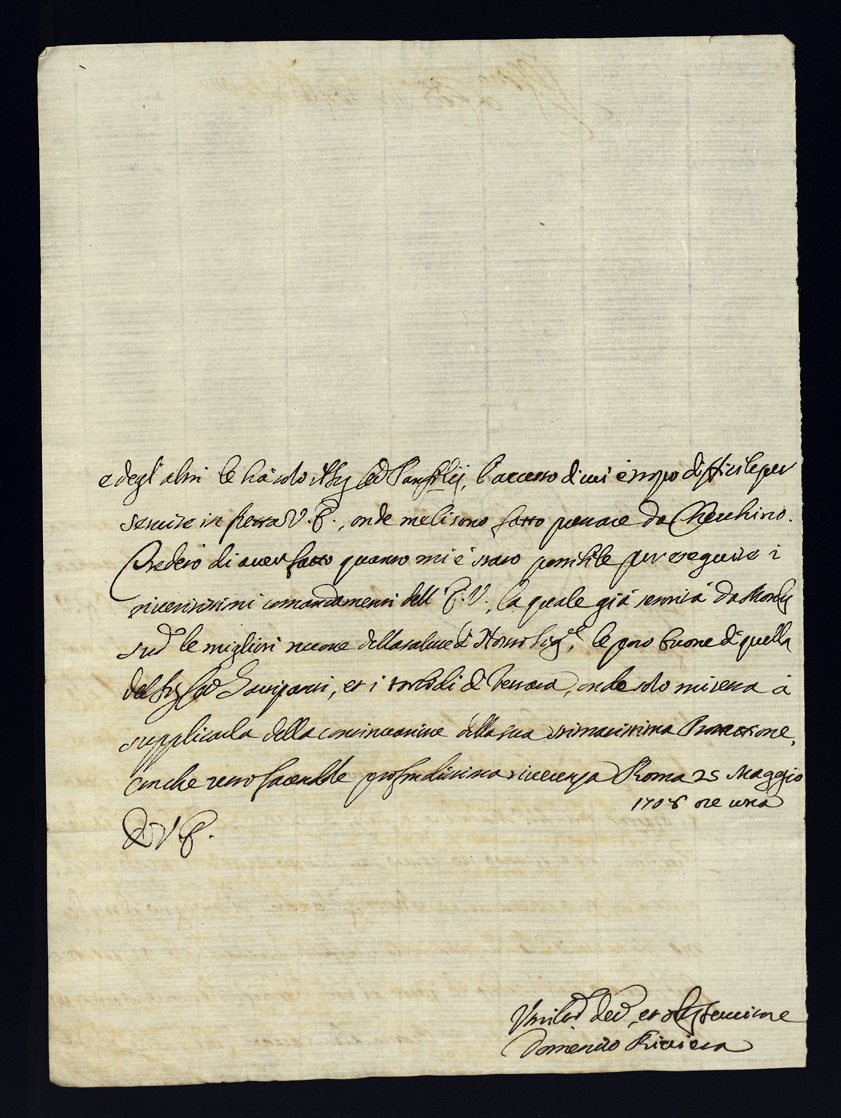 e degl'altri le ha solo il Sig Cd Panfilij, l'accesso di cui è troppo difficile per
servire in fretta V. E., onde me li sono fatto prestare da Checchino.
Crederò di aver fatto quanto mi è stato possibile per eseguire i
riveritissimi comandamenti dell'E. V., la quale già sentirà da
le migliori nuove della salute di Nostro Sig.re, le poco buone di quella
del Sig Cd, et i torbidi di Ferrara, onde solo mi resta à
supplicarla della continuazione della sua stimatissima Protezione,
anche resto facendole profondissima riverenza Roma 25 Maggio
1708 ore una
Di V E.
Umil.o Dev.o, et Servitore
Domenico Riviera